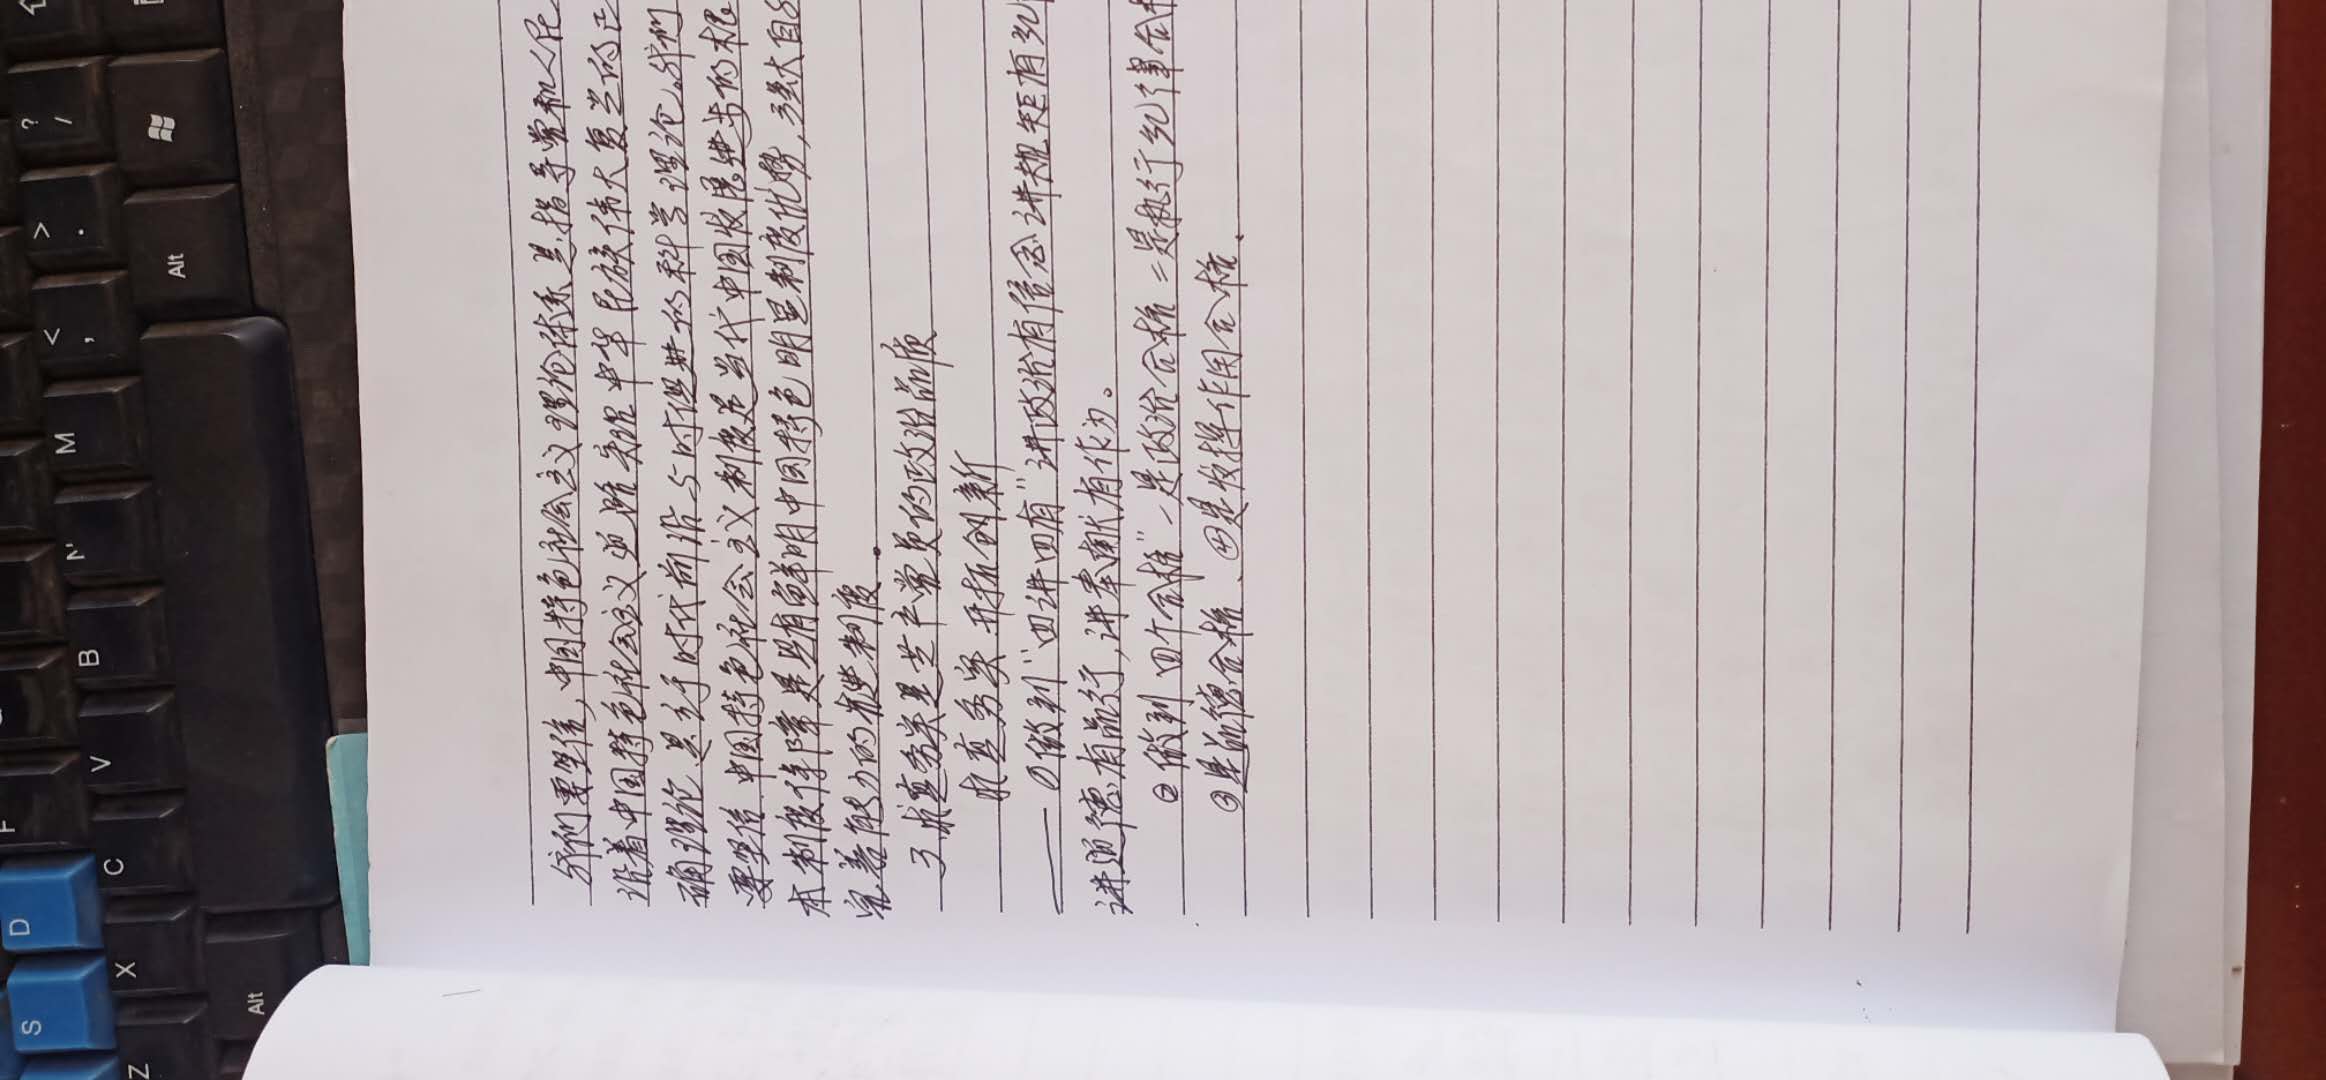 我们要坚信,中国特色社会主义理论体系是指导党和人民
沿着中国特色社会主义道路实现中华民族伟大复兴的正
确理论,是立于时代前沿与时俱进的科学理论。我们
要坚信 中国特色社会主义制度是当代中国发展进步的根
本制度保障 是具有鲜明中国特色 明显制度优势,强大自
完善能力的先进制度.
3.求真务实是共产党员的政治品质
求真务实 开拓创新
①做到"四讲四有"讲政治有信念 讲规矩有纪
讲道德有品行,讲奉献有作为。
②做到 四个合格"一是政治合格 二是执行纪律合格
③是品德合格、④是发挥作用合格.
?
/
>
.
<
,
M
N
B
V
C
X
Z
F
D
S
Alt
Alt